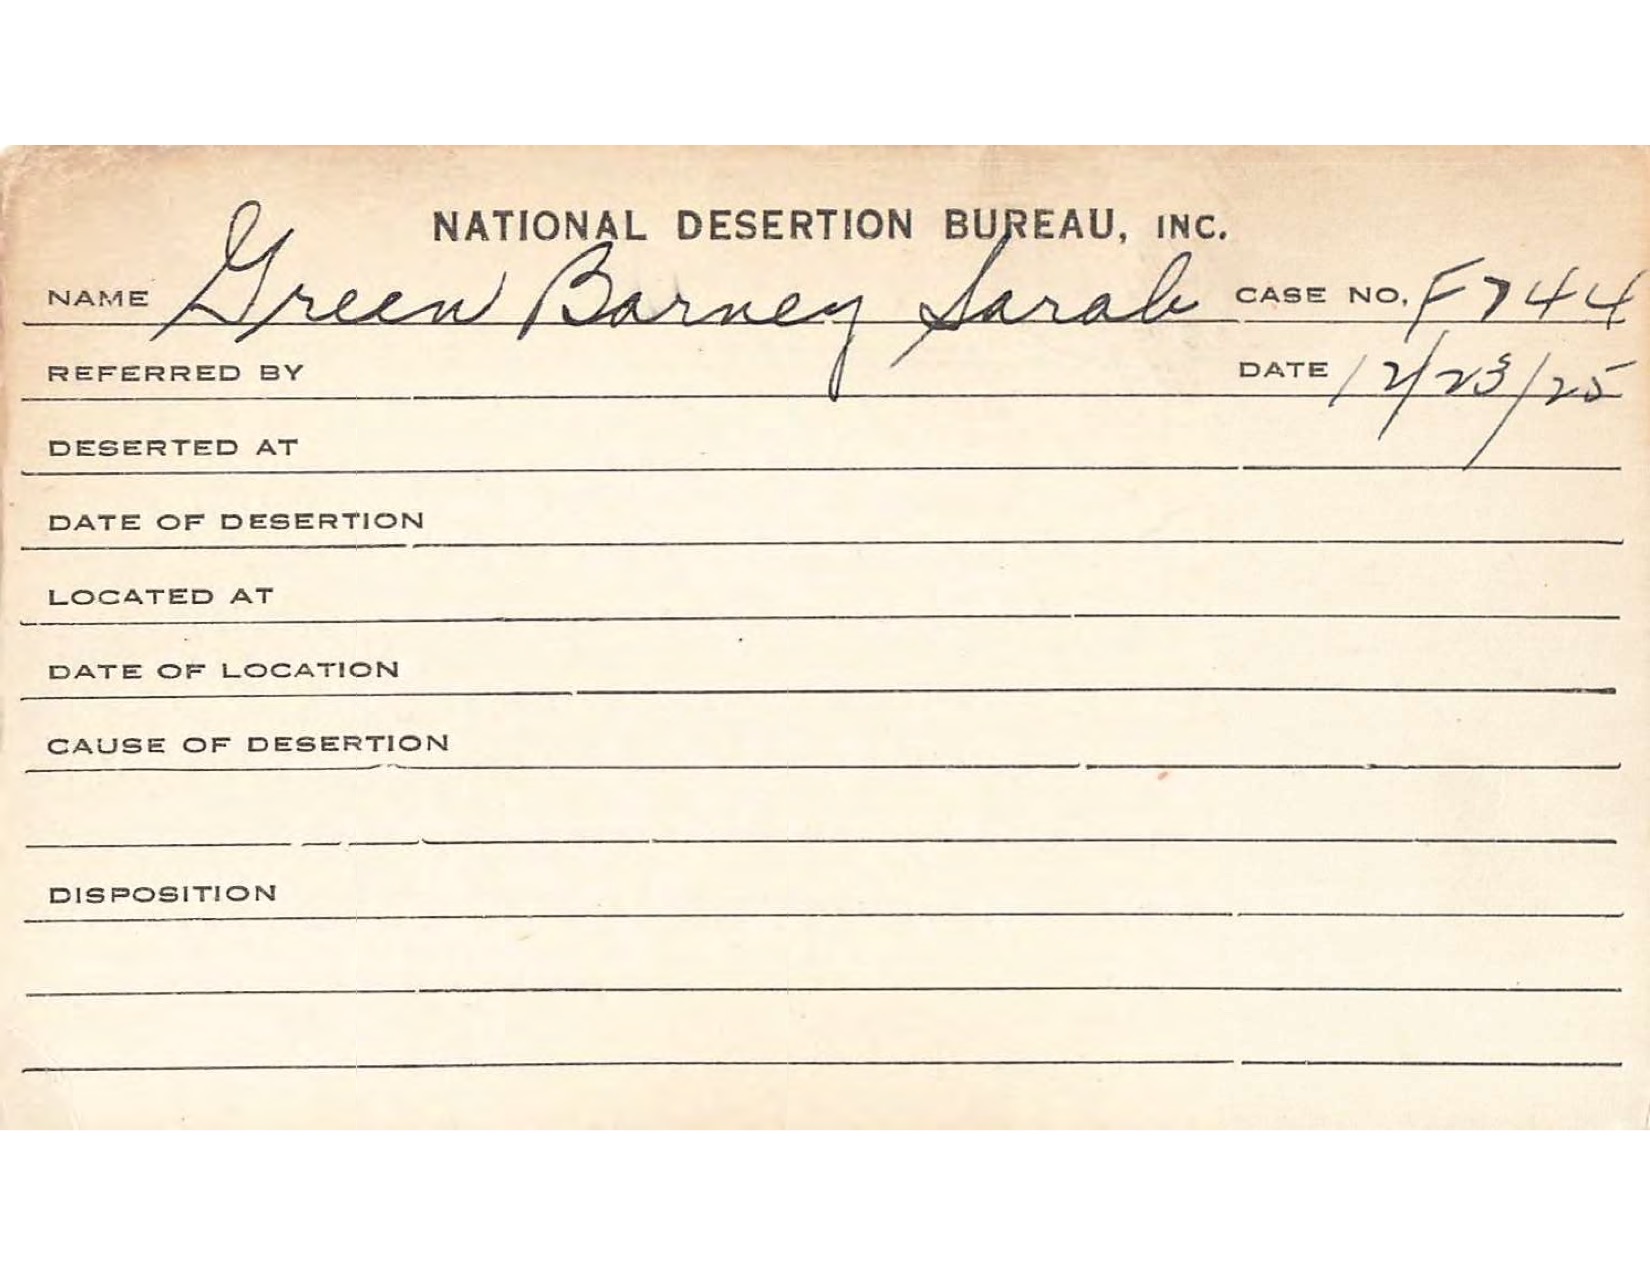 NATIONAL DESERTION BUREAU, INC.
NAME Green Barney Sarah CASE NO. F744
REFERRED BY DATE 12/23/25
DESERTED AT
DATE OF DESERTION
LOCATED AT
DATE OF LOCATION
CAUSE OF DESERTION
DISPOSITION